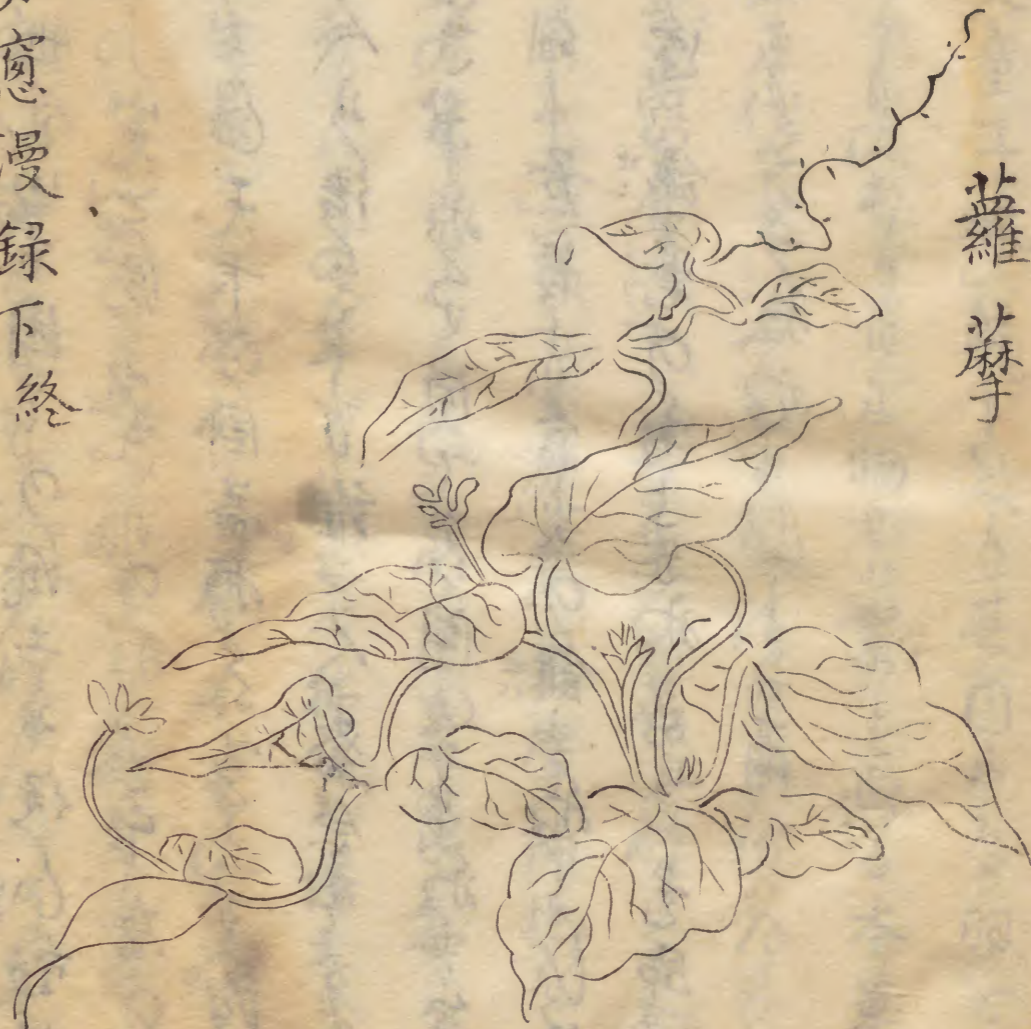 蘿藦
窓漫録下終